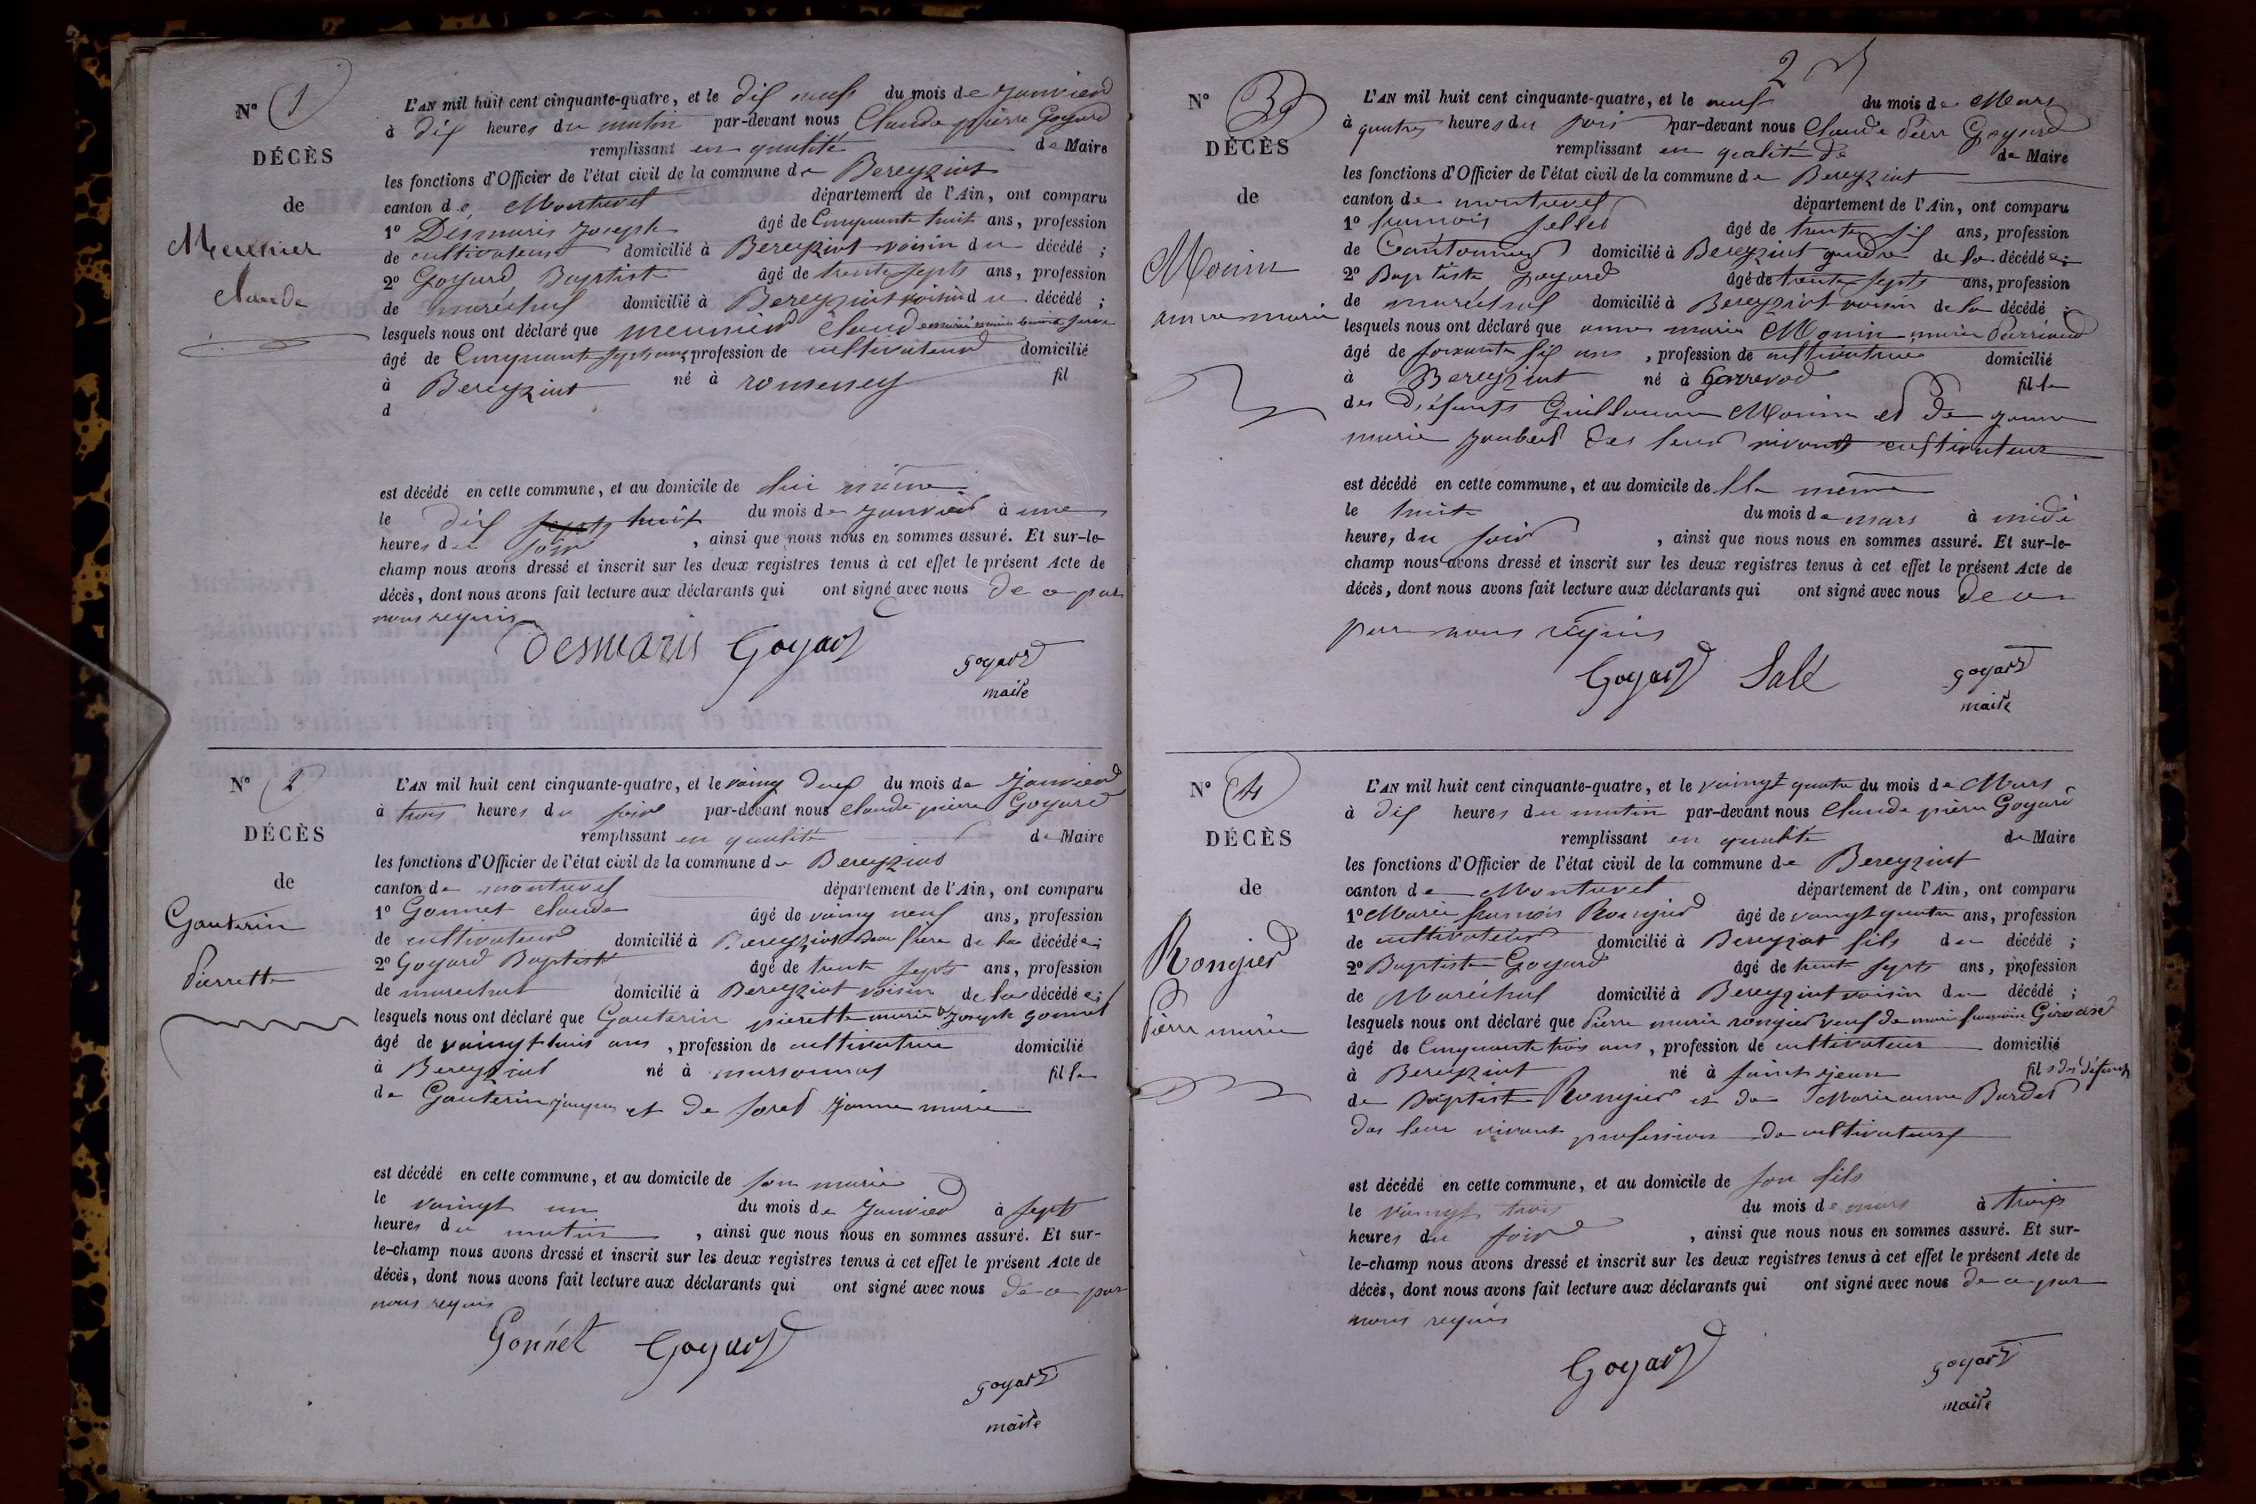 N° 1
DÉCÈS
de
Meunier
Claude
L'AN mil huit cent cinquante-quatre, et le dix neuf du mois de janvier
à dix heures du matin par-devant nous Claude pierre Goyard
remplissant en qualité de Maire
les fonctions d'Officier de l'état civil de la commune de Bereyziat
canton de Montrevel département de l'Ain, ont comparu
1° Desmaris Joseph âgé de Cinquante huit ans, profession
de cultivateur domicilié à Bereyziat voisin du décédé ;
2° Goyard Baptiste âgé de trente septs ans, profession
de maréchal domicilié à Bereyziat voisin du décédé ;
lesquels nous ont déclaré que meunier Claud
âgé de Cinquante sept ans profession de cultivateur domicilié
à Bereyziat né à romeney fil
d
est décédé en cette commune, et au domicile de lui même
le dix septs huit du mois de janvier à une
heures du soir , ainsi que nous nous en sommes assuré. Et sur-le-
champ nous avons dressé et inscrit sur les deux registres tenus à cet effet le présent Acte de
décès, dont nous avons fait lecture aux déclarants qui ont signé avec nous de ce par
nous requis
Desmaris Goyard
goyard
maire
N° 2
DÉCÈS
de
Gauterin
Pierrette
L'AN mil huit cent cinquante-quatre, et le vaing deux du mois de Janvier
à trois heures du soir par-devant nous Claude pierre Goyard
remplissant en qualité de Maire
les fonctions d'Officier de l'état civil de la commune de Bereyziat
canton de montrevel département de l'Ain, ont comparu
1° Gonnet Claude âgé de vaing neuf ans, profession
de cultivateur domicilié à Bereyziat beau frere de la décédée ;
2° Goyard Baptiste âgé de trente septs ans, profession
de marechal domicilié à Bereyziat voisin de la décédée ;
lesquels nous ont déclaré que Gauterin pierette mariée à Joseph gonnet
âgé de vaingt trois ans , profession de cultivatrice domicilié
à Bereyziat né à marsonnas fille
de Gauterin jacques et de foret janne marie
est décédé en cette commune, et au domicile de son marie
le vaingt un du mois de Janvier à septs
heures du matin , ainsi que nous nous en sommes assuré. Et sur-
le-champ nous avons dressé et inscrit sur les deux registres tenus à cet effet le présent Acte de
décès, dont nous avons fait lecture aux déclarants qui ont signé avec nous de ce par
nous requis
Gonnet Goyard
goyard
maire
2
N° 3
DÉCÈS
de
Monin
anne marie
L'AN mil huit cent cinquante-quatre, et le neuf du mois de Mars
à quatres heures du soir par-devant nous Claude Pierr Goyard
remplissant en qualité de de Maire
les fonctions d'Officier de l'état civil de la commune de Bereyziat
canton de montrevel département de l'Ain, ont comparu
1° francois sellet âgé de trente six ans, profession
de Cantonnier domicilié à Bereyziat gendre de la décédée ;
2° Baptiste Goyard âgé de trente septs ans, profession
de maréchal domicilié à Bereyziat voisin de la décédé ;
lesquels nous ont déclaré que anne marie Monin
âgé de soixante six ans , profession de cultivatrice domicilié
à Bereyziat né à Gorrevod fille
des défunts Guillaume Monin et de janne
marie joubert des leur vivant cultivateur
est décédé en cette commune, et au domicile de elle même
le huit du mois de mars à midi
heure, du soir , ainsi que nous nous en sommes assuré. Et sur-le-
champ nous avons dressé et inscrit sur les deux registres tenus à cet effet le présent Acte de
décès, dont nous avons fait lecture aux déclarants qui ont signé avec nous de ce
par nous requis
Goyard Salé
goyard
maire
N° 4
DÉCÈS
de
Rongier
Pierre marie
L'AN mil huit cent cinquante-quatre, et le vaingt quatre du mois de Mars
à dix heures du matin par-devant nous Claude pierre Goyard
remplissant en qualité de Maire
les fonctions d'Officier de l'état civil de la commune de Bereyziat
canton de Montrevel département de l'Ain, ont comparu
1° Marie francois Rongier âgé de vaingt quatre ans, profession
de cultivateur domicilié à Bereyziat fils du décédé ;
2° Baptiste Goyard âgé de trente septs ans, profession
de Maréchal domicilié à Bereyziat voisin du décédé ;
lesquels nous ont déclaré que Pierre marie rongier veuf de marie francoise Girard
âgé de Cinquante trois ans , profession de cultivateur domicilié
à Bereyziat né à saint jean fils des défunts
de Baptiste Rongier et de Marie anne Bardet
des leur vivant profession de cultivateurs
est décédé en cette commune, et au domicile de son fils
le vaingt trois du mois de mars à trois
heures du soir , ainsi que nous nous en sommes assuré. Et sur-
le-champ nous avons dressé et inscrit sur les deux registres tenus à cet effet le présent Acte de
décès, dont nous avons fait lecture aux déclarants qui ont signé avec nous de ce par
nous requis
Goyard
goyard
maire